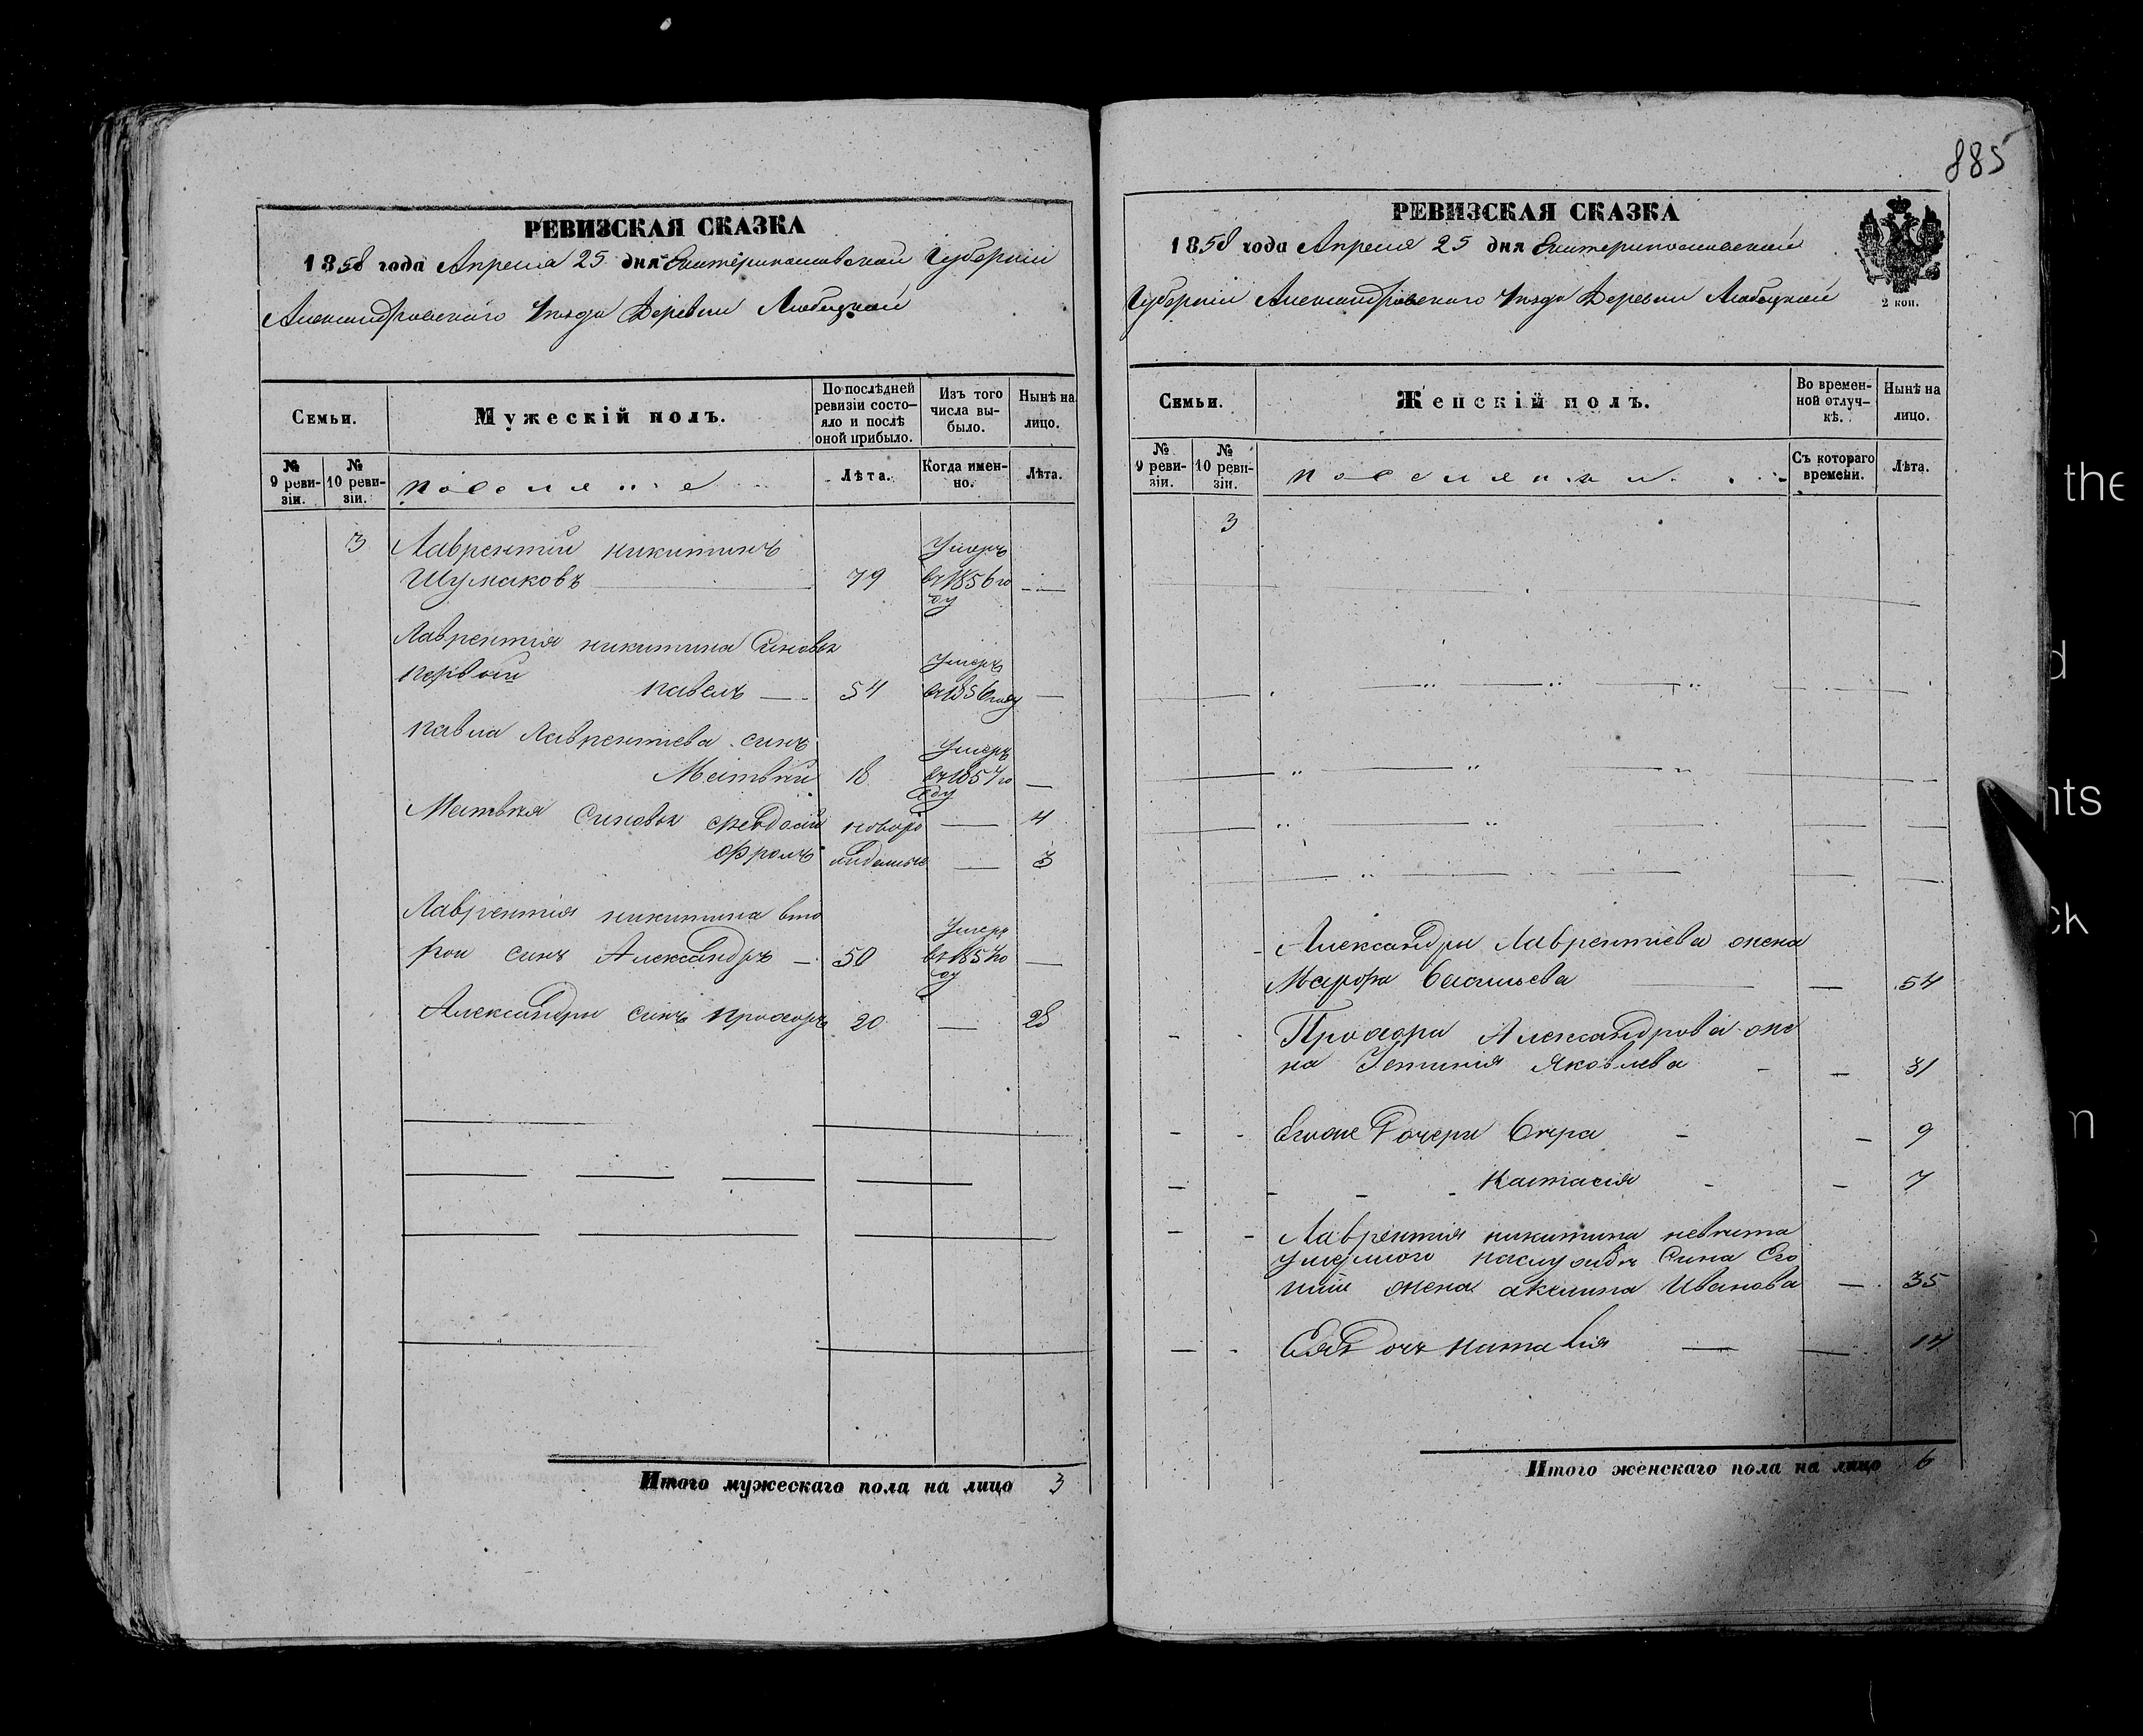 885
РЕВИЗСКАЯ СКАЗКА
1858 года Апреля 25 дня Екатеринославской Губерніи
Александровскаго Уезда Деревни Любицкой
Семьи.
Мужескій полъ.
По послѣдней ревизіи состо-
яло и послѣ
оной прибыло.
Изъ того
числа вы-
было.
Нынѣ на
лицо.
№
9 реви-
зіи.
№
10 реви-
зіи.
поселяне
Лѣта.
Когда имен-
но.
Лѣта.
3 Лаврентий никитинъ Умеръ
Шумаковъ 79 въ 1856 го
ду
Лаврентия никитина Синовья
первый Умеръ
павелъ 54 въ 1856 году
павла Лаврентиева синъ Умеръ
Матвий 18 въ 1857 го
ду
Матвия Синовья 4
Фролъ 3
Лаврентия никитина вто Умеръ
рои синъ Александръ 50 въ 1857 го
ду
Александры синъ прохоръ 20 28
Итого мужескаго пола на лицо 3
РЕВИЗСКАЯ СКАЗКА
1858 года Апреля 25 дня Екатеринославской
Губерніи Александровскаго Уезда Деревни Любицкой
2 коп.
Семьи.
Женскій полъ.
Во времен-
ной отлуч-
кѣ.
Нынѣ на
лицо.
№
9 реви-
зіи.
№
10 реви-
зіи.
поселянки
Съ котораго
времени.
Лѣта.
3
Александры Лаврентиева жена
Марфа Васильева 54
Прохора Александрова же
на Устиния Яковлева 31
Егоже Дочери Вера 9
настасия 7
Лаврентия никитина
умершого Сина
жена акилина Иванова 35
Ея Доч наталия 14
Итого женскаго пола на лицо 6
the
d
nts
ck
m